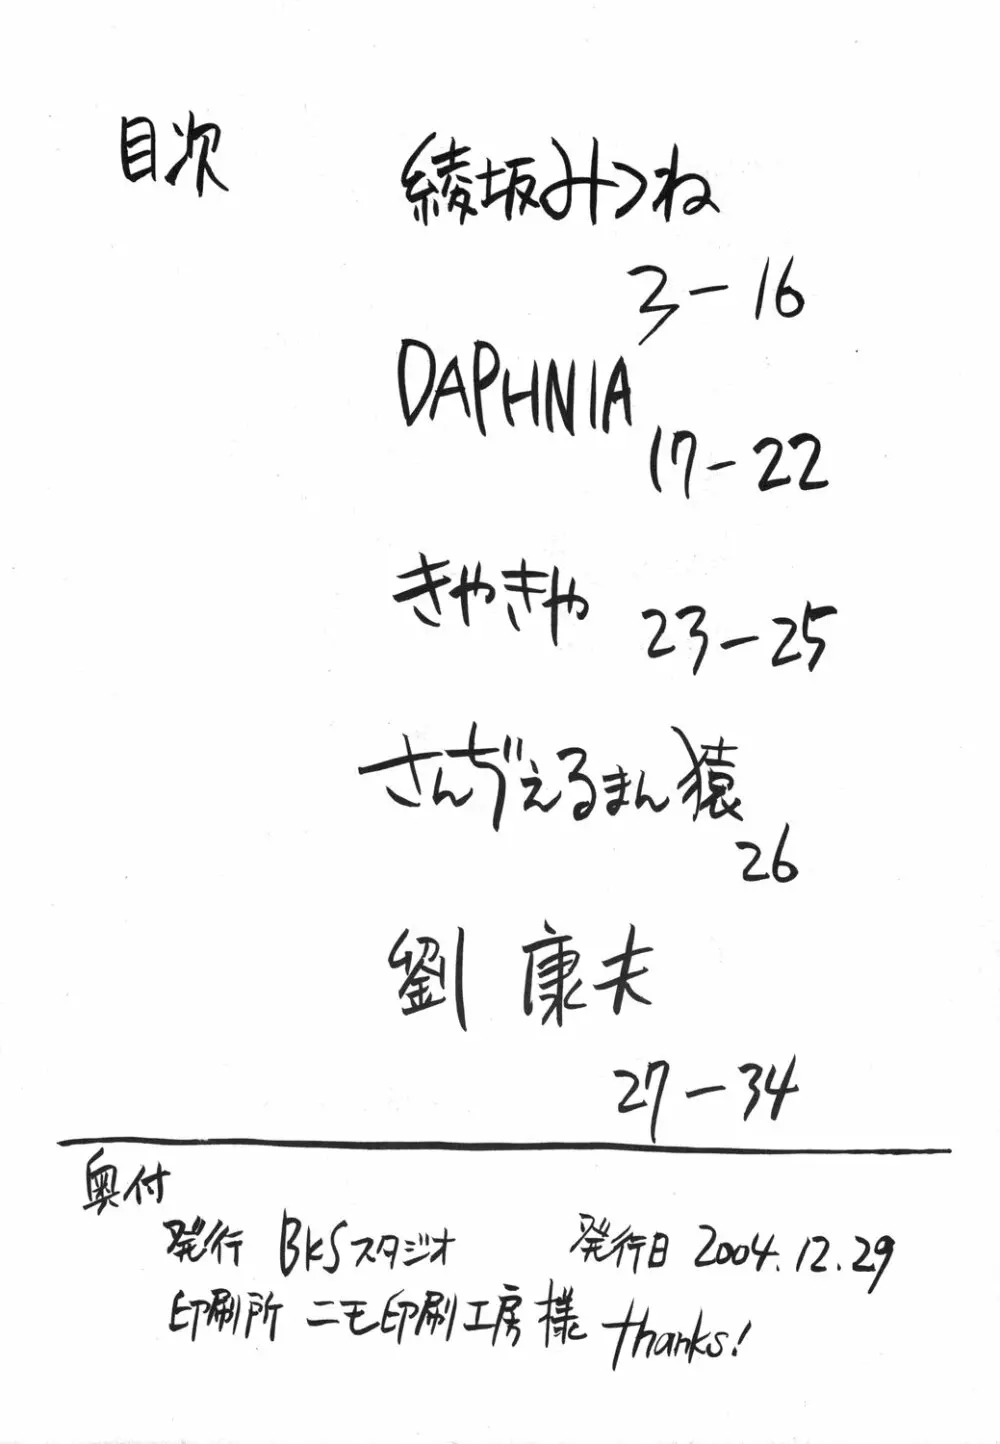 目次
綾坂みつね
3-16
DAPHNIA
17-22
きやきや 23-25
さんぢぇるまん猿
26
劉 康夫
27-34
奥付
発行 BKSスタジオ 発行日 2004.12.29
印刷所 ニモ印刷工房様 thanks!